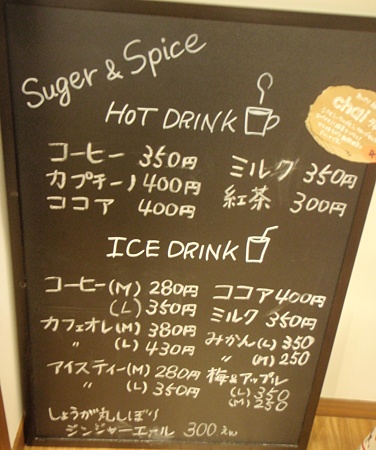 Suger & Spice
HOT DRINK
コーヒー 350円
カプチーノ 400円
ココア 400円
ミルク 350円
紅茶 300円
chai
ICE DRINK
コーヒー(M) 280円
(L) 350円
カフェオレ(M) 380円
〃 (L) 430円
アイスティー(M) 280円
〃 (L) 350円
ココア 400円
ミルク 350円
みかん(L) 350
〃 (M) 250
梅&アップル
(L) 350
(M) 250
しょうが丸しぼり
ジンジャーエール 300えん